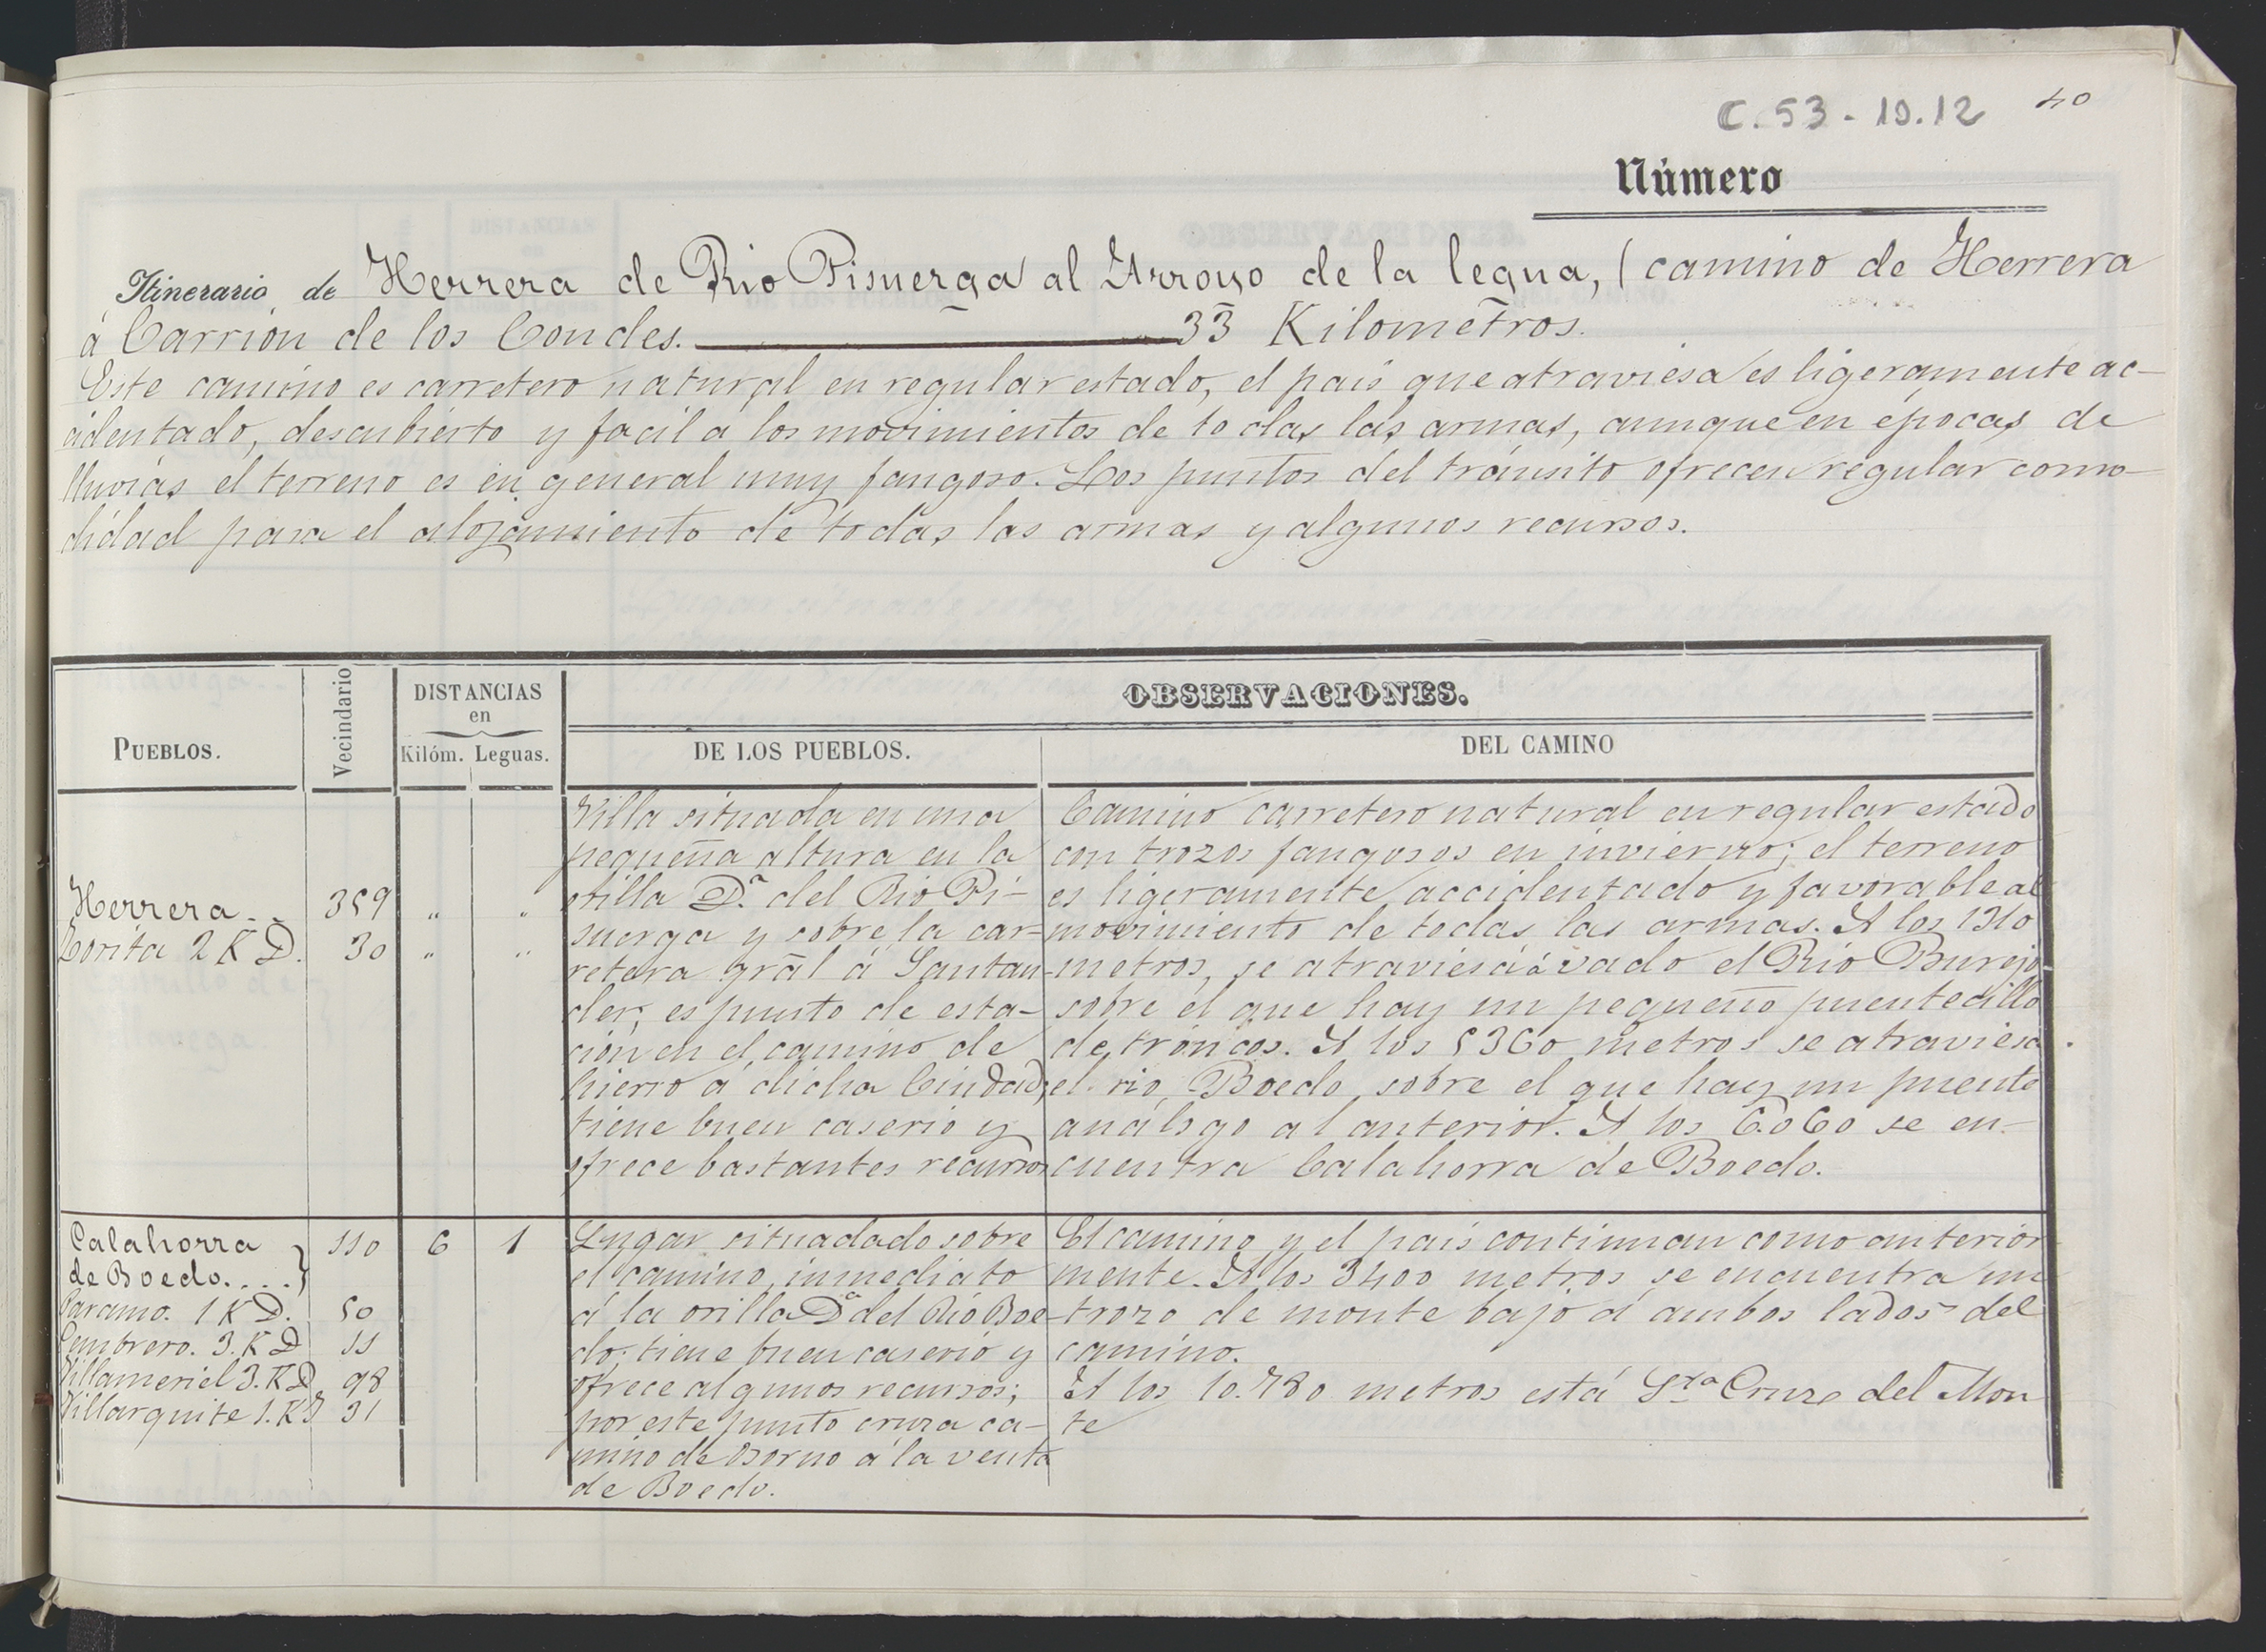 C. 53 - 10.12 40
Número
Itinerario de Herrera de Rio Pisuerga al Arroyo de la legua, (camino de Herrera
á Carrión de los Condes. 33 Kilometros.
Este camino es carretero natural en regular estado, el pais que atraviesa es ligeramente ac-
cidentado, descubierto y facil á los movimientos de todas las armas, aunque en épocas de
lluvias el terreno es en general muy fangoso. Los puntos del tránsito ofrecen regular como-
didad para el alojamiento de todas las armas y algunos recursos.
PUEBLOS. Vecindario DISTANCIAS en Kilóm. Leguas. OBSERVACIONES.
DE LOS PUEBLOS. DEL CAMINO
Herrera.. 359 " "
Zorita 2 K D. 30 " "
Villa situada en una
pequeña altura en la
orilla Dª. del Rio Pi-
suerga y sobre la car-
retera grãl á Santan-
der, es punto de esta-
ción en el camino de
hierro á dicha Ciudad,
tiene buen caserio y
ofrece bastantes recursos
Camino carretero natural en regular estado
con trozos fangosos en invierno; el terreno
es ligeramente accidentado y favorable al
movimiento de todas las armas. A los 1310
metros, se atraviesa á vado el Rio Burejo
sobre el que hay un pequeño puentecillo
de troncos. A los 5360 metros se atraviesa
el rio Boedo sobre el que hay un puente
análogo al anterior. A los 6.060 se en-
cuentra Calahorra de Boedo.
Calahorra
de Boedo....} 110 6 1
Paramo. 1 K D. 50
Zembrero. 3. K D 11
Villameriel 3. K D 98
Villarquite 1. K I 31
Lugar situadado sobre
el camino, inmediato
á la orilla Dª del Rio Boe-
do; tiene buen caserió y
ofrece algunos recursos;
por este punto cruza ca-
mino de Osorno á la venta
de Boedo.
El camino y el pais continuan como anterior
mente. A los 3400 metros se encuentra un
trozo de monte bajo á ambos lados del
camino.
A los 10.780 metros está Sta Cruz del Mon
te